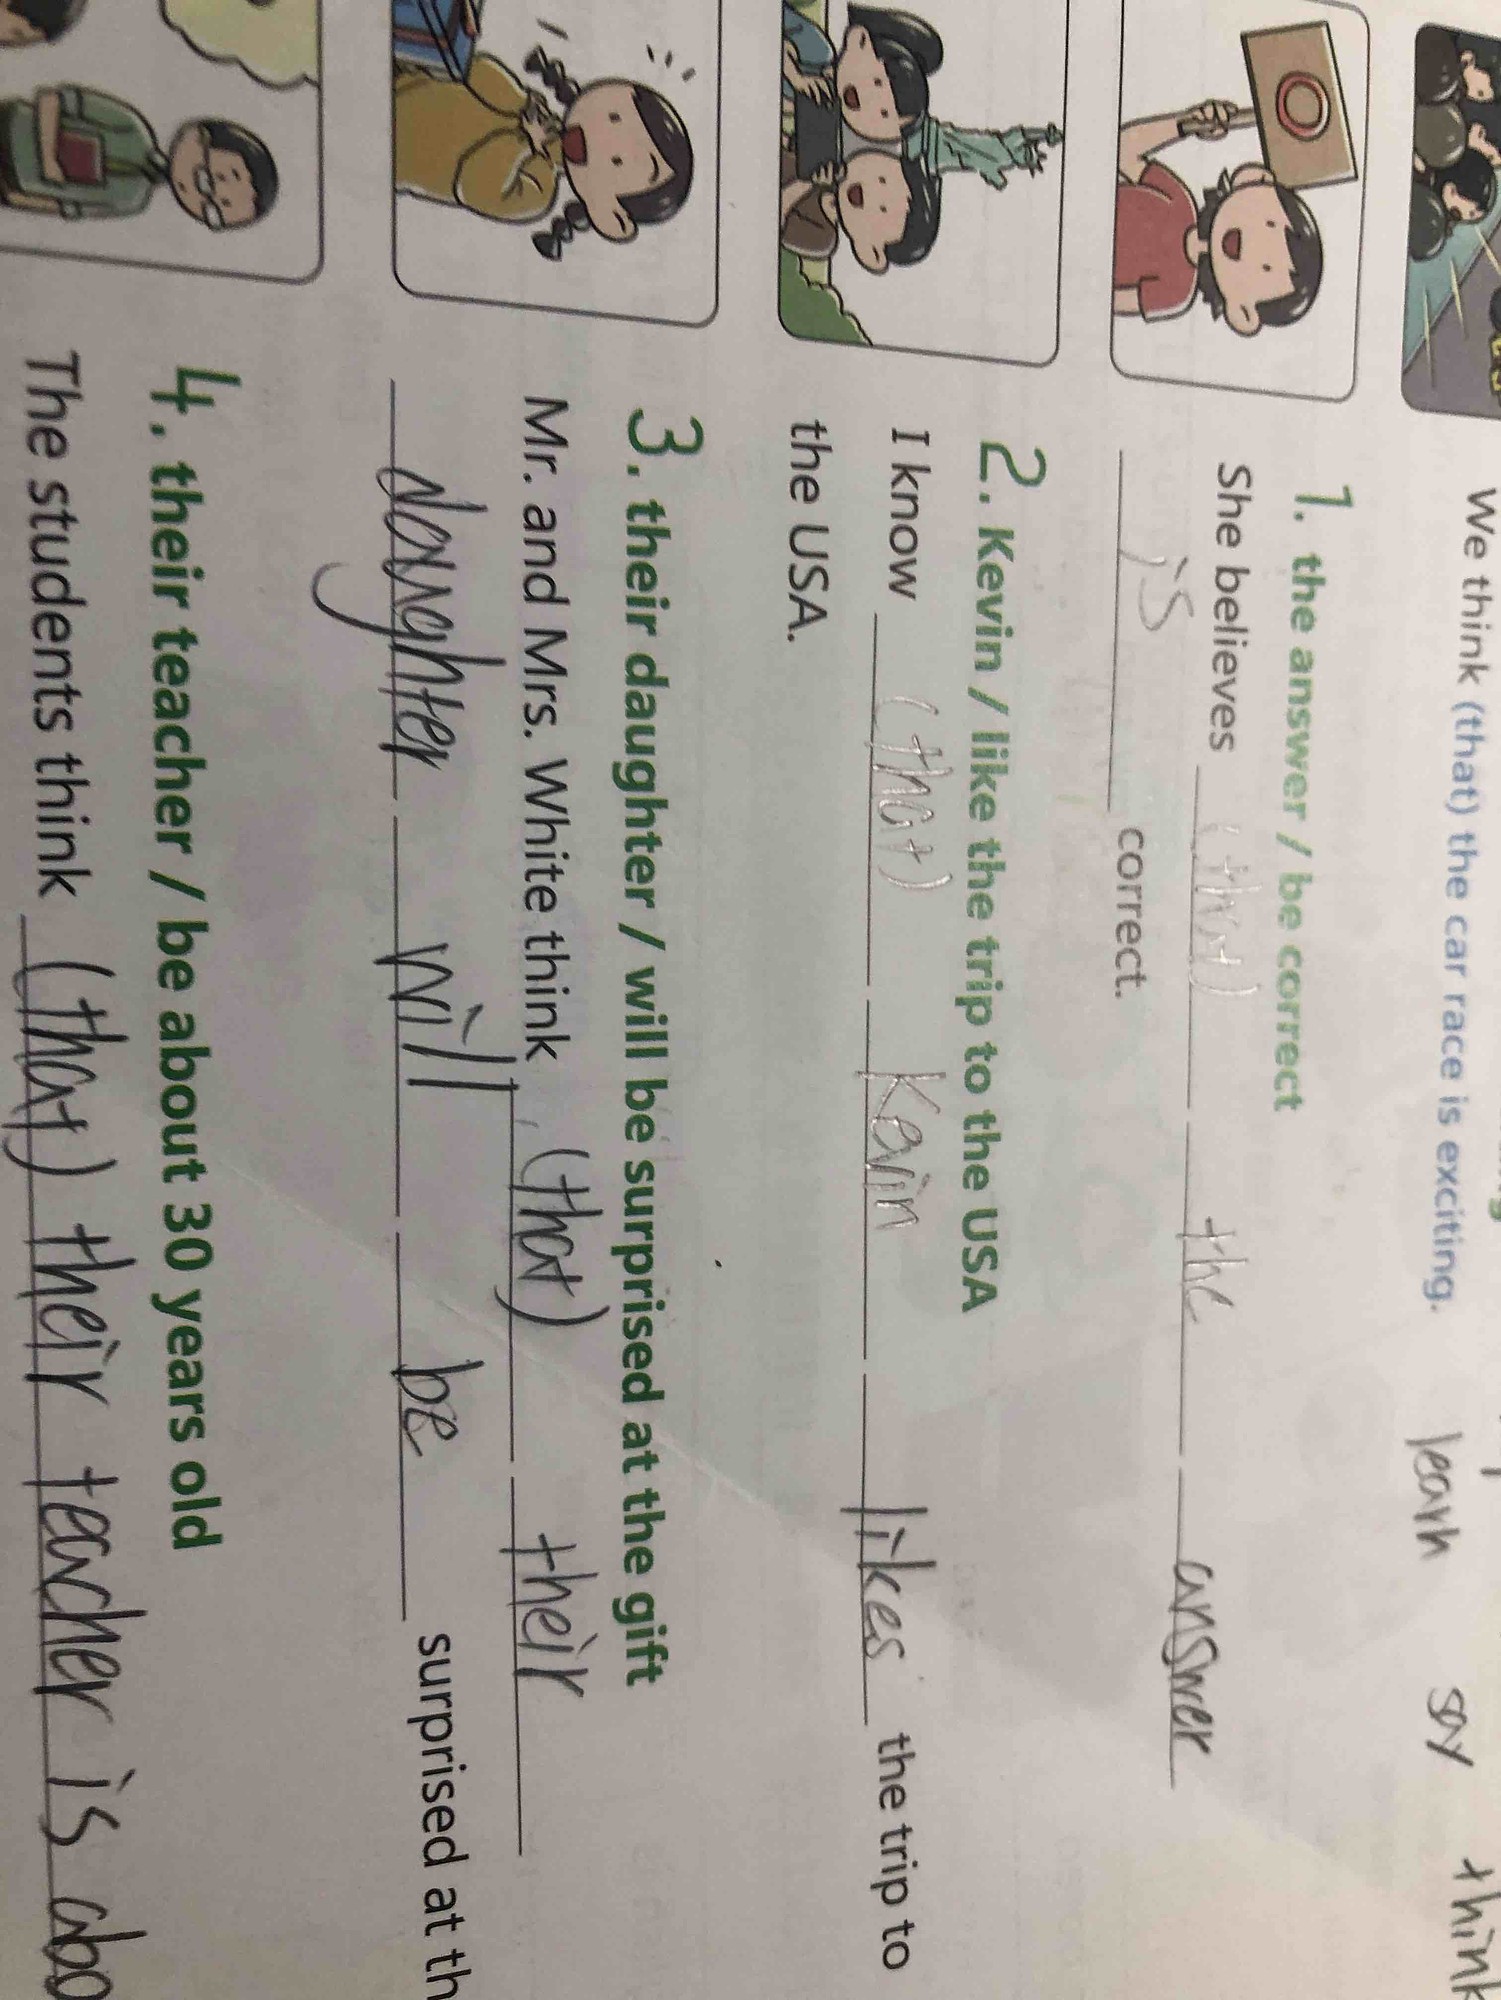 We think (that) the car race is exciting.
learn say think
1. the answer / be correct
She believes (that) the answer
is correct.
2. Kevin / like the trip to the USA
I know (that) Kevin likes the trip to
the USA.
3. their daughter / will be surprised at the gift
Mr. and Mrs. White think (that) their
daughter will be surprised at th
4. their teacher / be about 30 years old
The students think (that) their teacher is abo